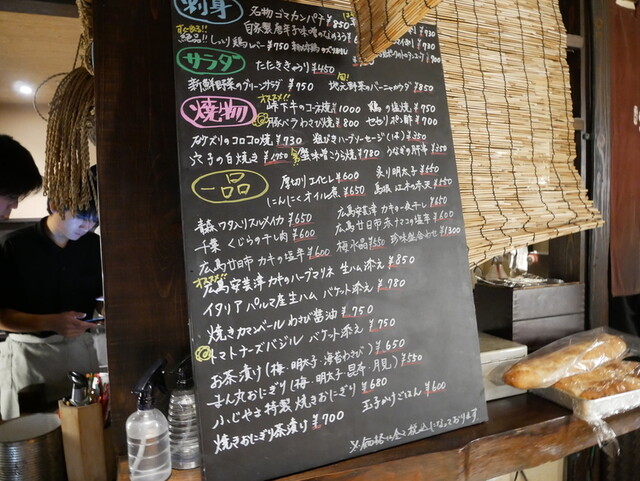 刺身
名物 ゴマカンパチ ¥850
すぐ出る!!
絶品!! しっとり 鶏レバー ¥750
サラダ
たたききゅうり ¥450
新鮮野菜のグリーンサラダ ¥750
旬!
地元野菜のバーニャカウダ ¥850
焼物
オススメ!!
峰下牛のコーネ焼 ¥1000
鶏の塩焼 ¥750
豚バラわさび焼 ¥800
せせりポン酢 ¥700
砂ズリのコロコロ焼 ¥730
粗びきハーブソーセージ(1本) ¥350
穴子の白焼き ¥1750
蟹味噌こうら焼 ¥780
うなぎの肝串 ¥350
一品
厚切りエイヒレ ¥600
炙り明太子 ¥550
にんにくオイル煮 ¥650
¥550
青森 ワタ入りスルメイカ ¥650
広島安芸津 カキの一夜干し ¥650
千葉 くじらの干し肉 ¥600
広島廿日市 赤ナマコの塩辛 ¥600
広島廿日市 カキの塩辛 ¥600
梅水晶 ¥550
珍味盛合わせ ¥1300
オススメ!!
広島安芸津 カキのハーブマリネ 生ハム添え ¥850
イタリア パルマ産生ハム バケット添え ¥780
焼きカマンベール わさび醤油 ¥750
トマトチーズバジル バケット添え ¥750
お茶漬け (梅・明太子・海苔わさび) ¥650
まん丸おにぎり (梅・明太子・昆布・月見) ¥550
ふじやま特製 焼きおにぎり ¥680
玉子かけごはん ¥600
焼きおにぎり茶漬け ¥700
※価格は全て税込となっております